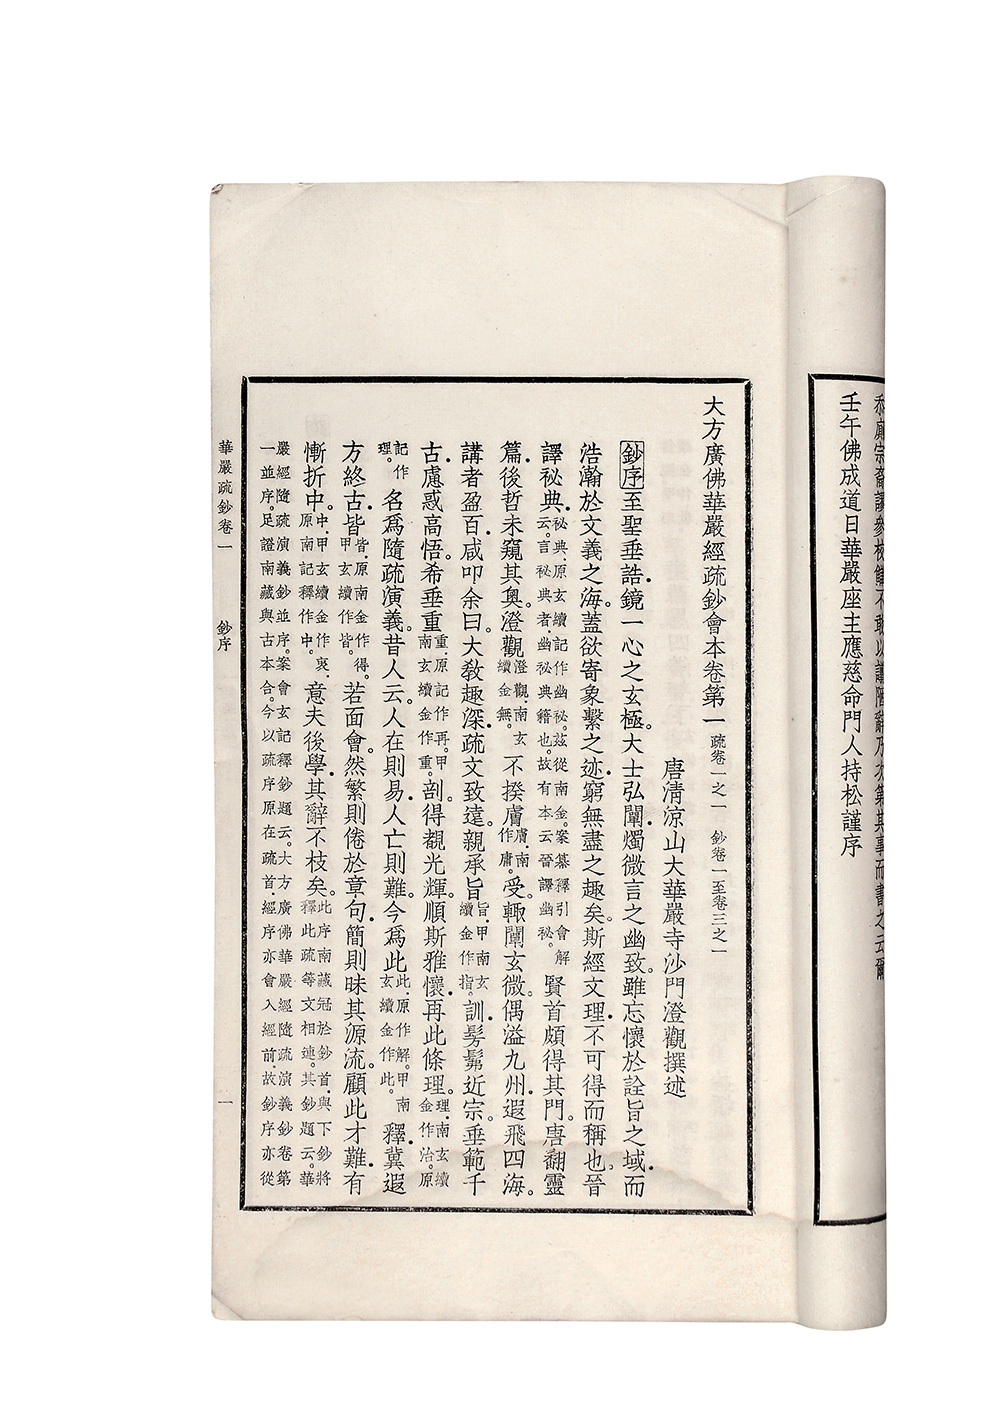 忝廁宗裔謬參校讎不敢以譾陋辭乃次第其事而書之云爾
壬午佛成道日華嚴座主應慈命門人持松謹序
大方廣佛華嚴經疏鈔會本卷第一 疏卷一之一 鈔卷一至卷三之一
唐清涼山大華嚴寺沙門澄觀撰述
鈔序至聖垂誥.鏡一心之玄極。大士弘闡.燭微言之幽致。雖忘懷於詮旨之域.而
浩瀚於文義之海。蓋欲寄象繫之迹.窮無盡之趣矣。斯經文理.不可得而稱也。晉
譯祕典.祕典.原玄續記作幽祕。茲從南金。案纂釋引會解云。言祕典者.幽祕典籍也。故有本云晉譯幽祕。賢首頗得其門。唐翻靈
篇.後哲未窺其奧。澄觀澄觀.南玄續金無。不揆膚膚.南作庸。受.輙闡玄微。偶溢九州.遐飛四海。
講者盈百.咸叩余曰。大敎趣深.疏文致遠。親承旨旨.甲南玄續金作指。訓.髣髴近宗。垂範千
古.慮惑高悟。希垂重重.原記作再。甲南玄續金作重。剖.得覩光輝。順斯雅懷.再此條理。理.南玄續金作治。原
記作理。名爲隨疏演義。昔人云.人在則易.人亡則難。今爲此此.原作解。甲南玄續金作此。釋.冀遐
方終古.皆皆.原南金作得。甲玄續作皆。若面會。然繁則倦於章句.簡則昧其源流。顧此才難.有
慚折中。中.甲玄續金作衷.原南記釋作中。意夫後學.其辭不枝矣。此序南藏冠於鈔首.與下鈔將釋此疏等文相連。其鈔題云。華
嚴經隨疏演義鈔並序。案會玄記釋鈔題云。大方廣佛華嚴經隨疏演義鈔卷第
一並序。足證南藏與古本合。今以疏序原在疏首.經序亦會入經前.故鈔序亦從
華嚴疏鈔卷一 鈔序 一